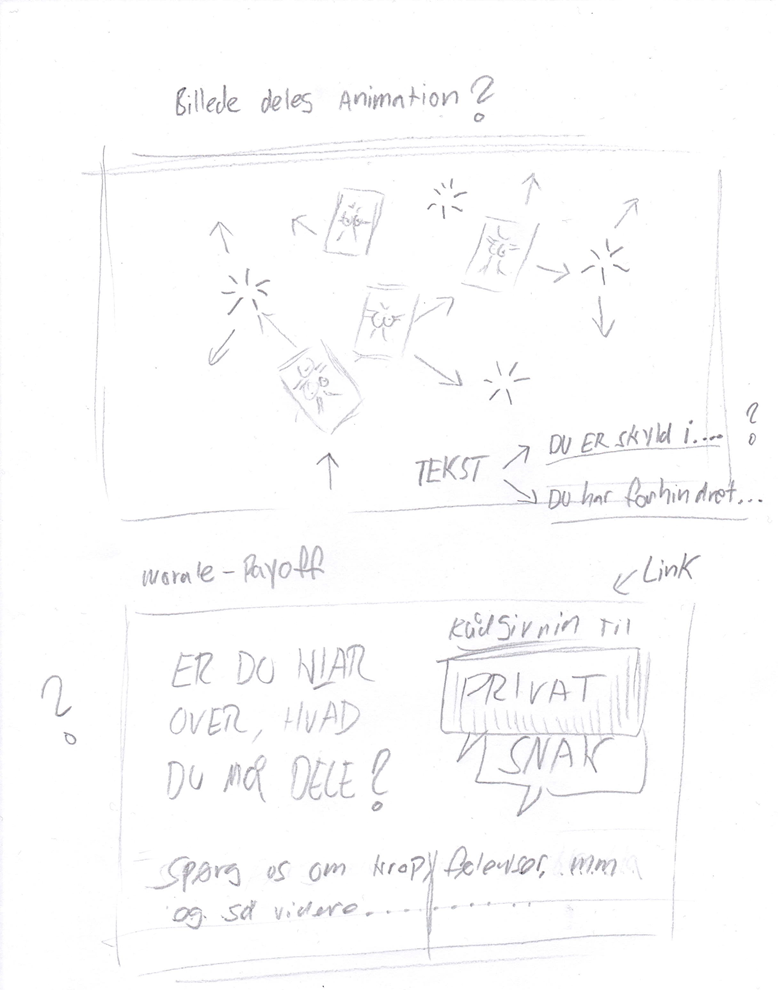 Billede deles Animation?
TEKST
DU ER skyld i.... ?
Du har forhindret...
morale - Payoff
Link
Rådgivnin Til
PRIVAT
SNAK
ER DU KLAR
OVER, HVAD
DU MÅ DELE?
?
Spørg os om krop, følelser, mm
og så videre..............